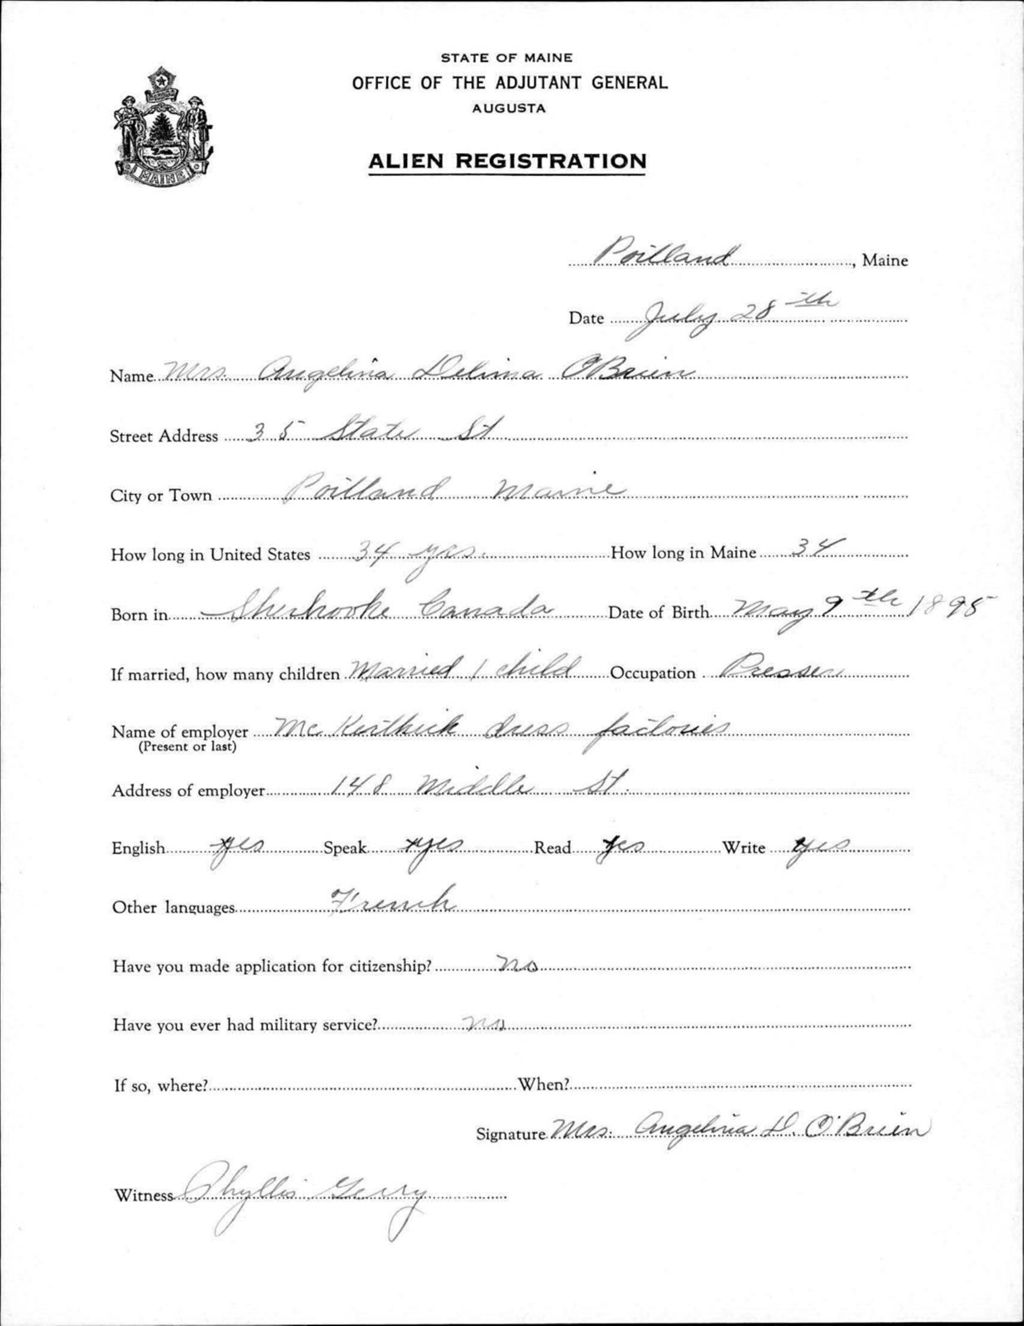 STATE OF MAINE
OFFICE OF THE ADJUTANT GENERAL
AUGUSTA
ALIEN REGISTRATION
MAINE
Portland, Maine
Date July 28th
Name Mrs. Angelina Delima O'Brien
Street Address 35 State St
City or Town Portland Maine
How long in United States 34 yrs. How long in Maine 34
Born in Sherbrooke Canada Date of Birth May 9th 1895
If married, how many children Married 1 child Occupation Presser
Name of employer Mc dress factories
(Present or last)
Address of employer 148 Middle St.
English yes Speak yes Read yes Write yes
Other languages French
Have you made application for citizenship? no
Have you ever had military service? no
If so, where? When?
Signature Mrs. Angelina D. O'Brien
Witness Phyllis Gerry